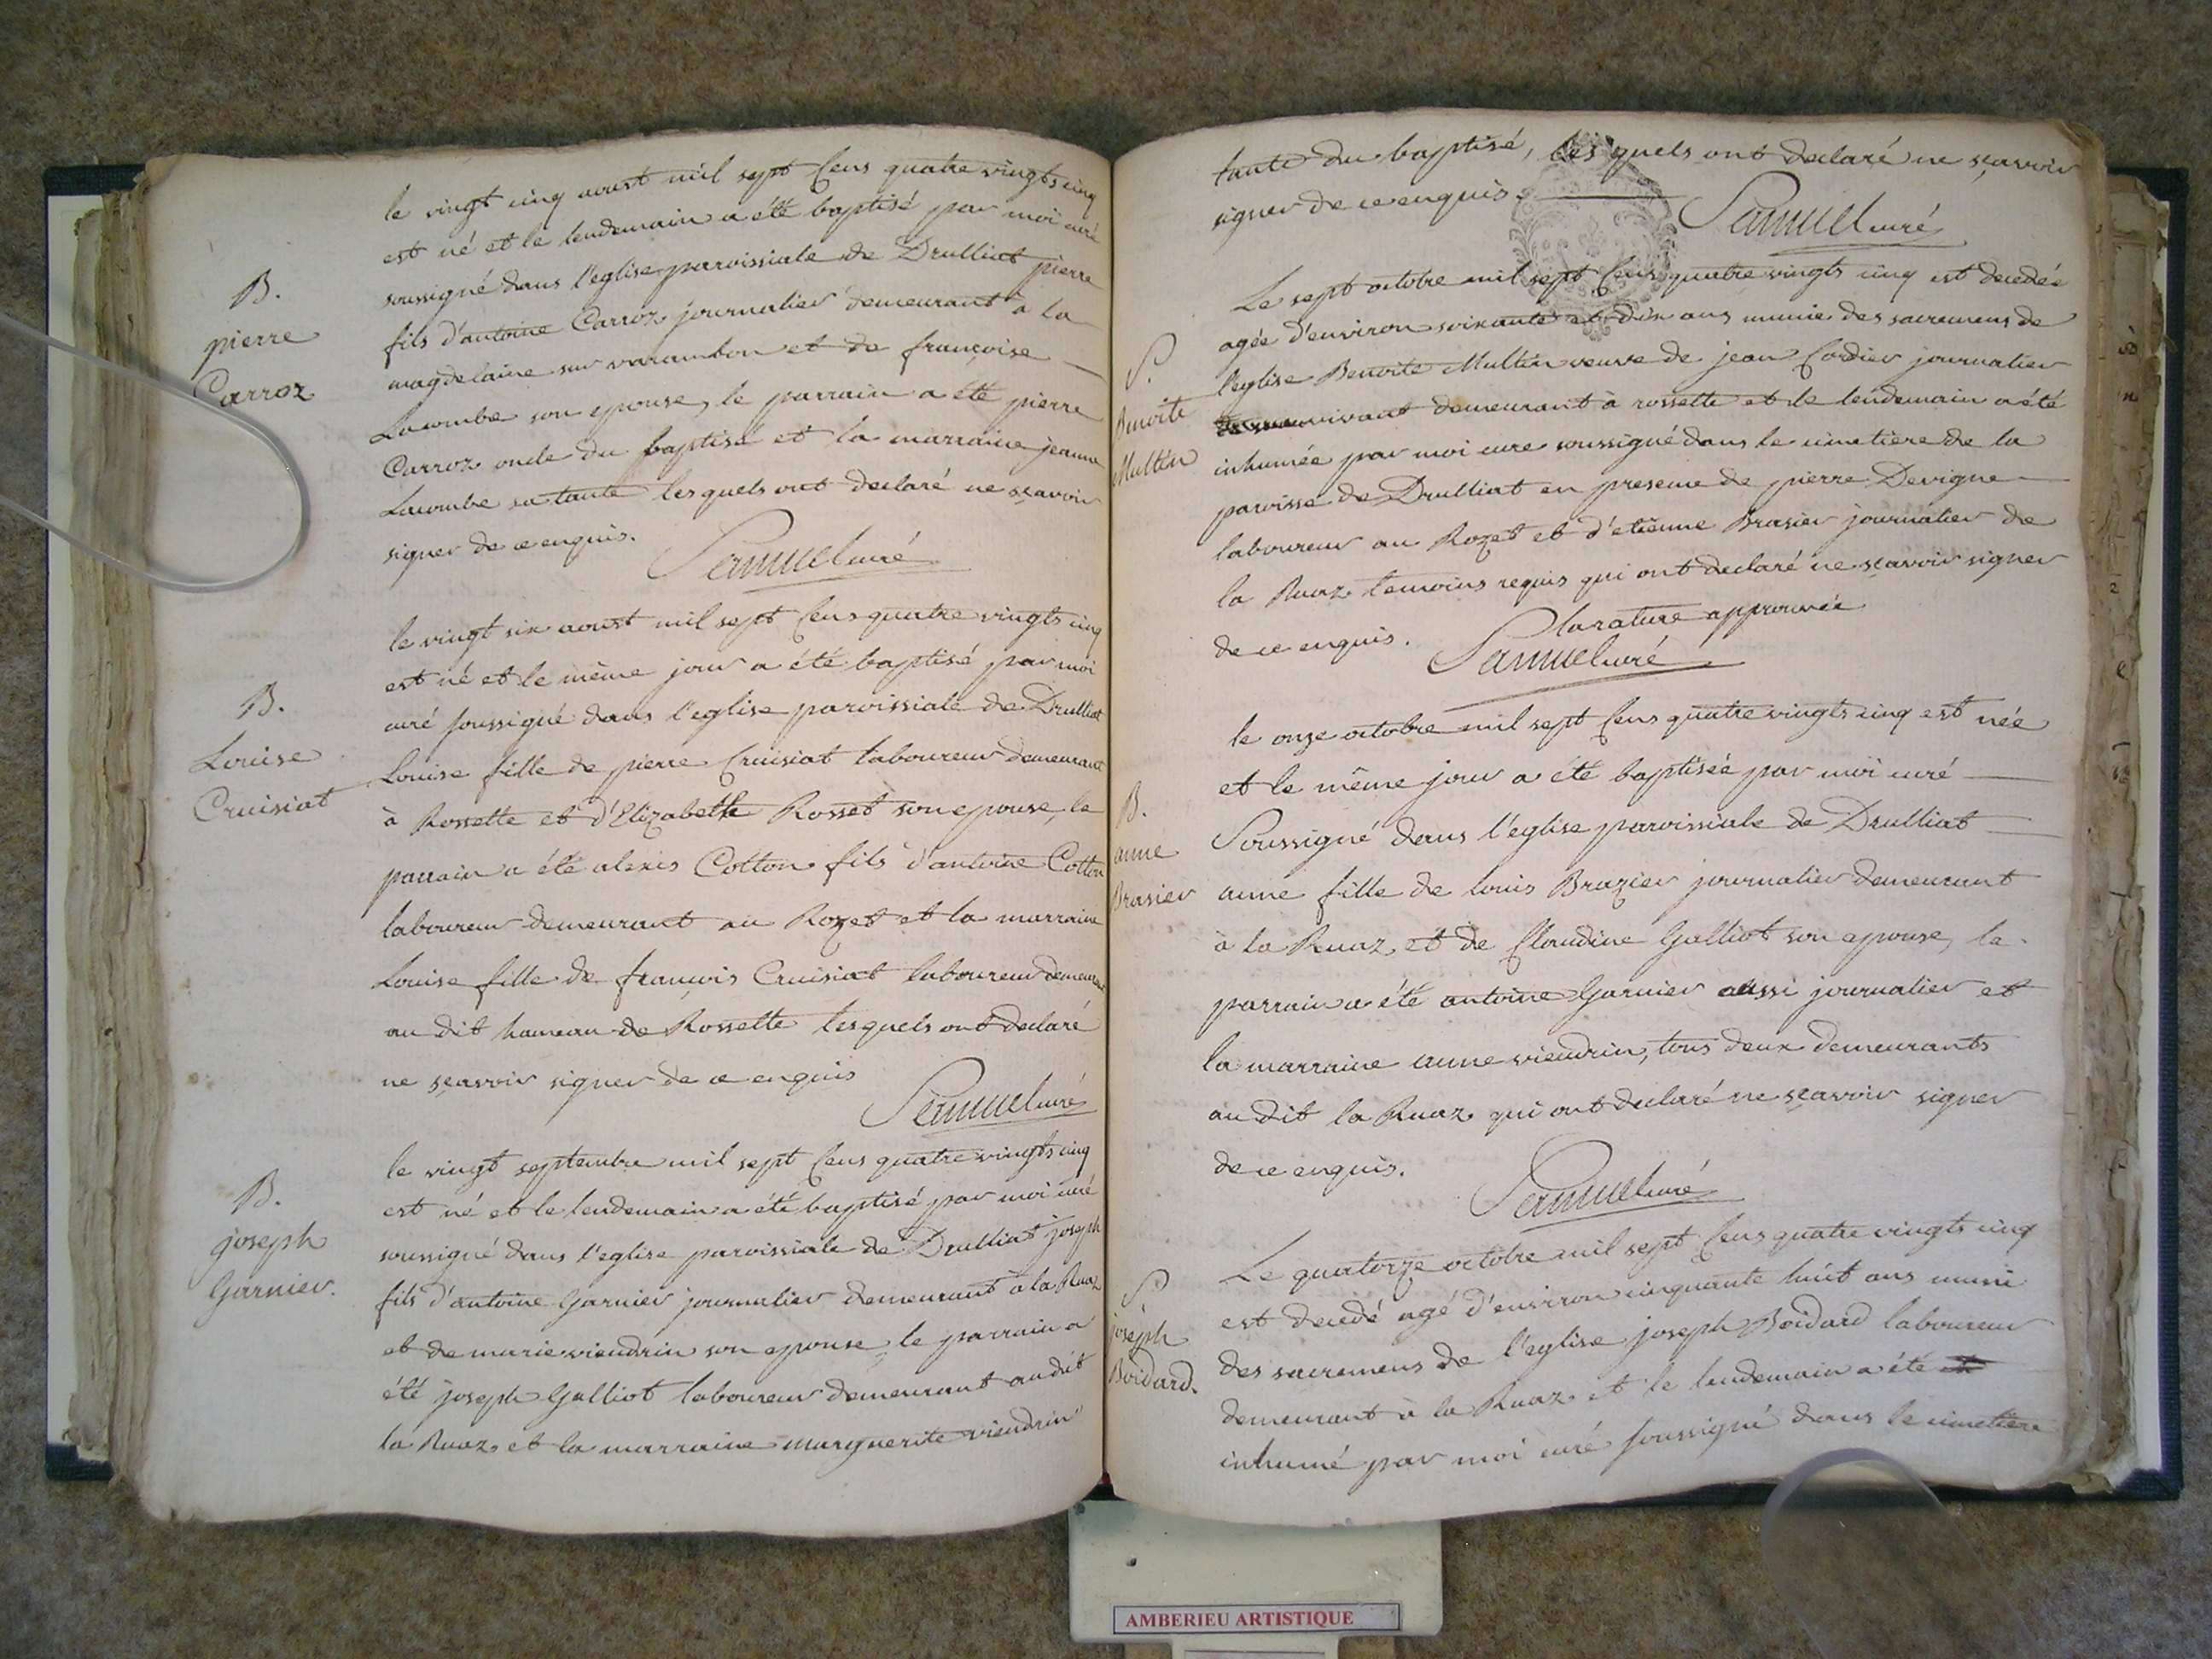 B.
pierre
Carroz
le vingt cinq aoust mil sept Cens quatre vingts cinq
est né et le lendemain a été baptisé par moi curé
soussigné dans l'eglise paroissiale de Drulliat pierre
fils d'antoine Carroz journalier demeurant à la
magdelaine sur varambon et de françoise
Lacombe son epouse, le parrain a été pierre
Carroz oncle du baptisé et la marraine jeanne
Lacombe sa tante lesquels ont declaré ne sçavoir
signer de ce enquis.
Samuel curé
B.
Louise
Cruisiat
le vingt six aoust mil sept Cens quatre vingts cinq
est né et le même jour a été baptisé par moi
curé soussigné dans l'eglise paroissiale de Drulliat
Louise fille de pierre Cruisiat laboureur demeurant
à Rossette et d'Elizabeth Rosset son epouse, le
parrain a été alexis Cotton fils d'antoine Cotton
laboureur demeurant au Rozet et la marraine
Louise fille de françois Cruisiat laboureur demeurant
au dit hameau de Rossette lesquels ont declaré
ne sçavoir signer de ce enquis
Samuel curé
B.
joseph
Garnier.
le vingt septembre mil sept Cens quatre vingts cinq
est né et le lendemain a été baptisé par moi curé
soussigné dans l'eglise paroissiale de Drulliat joseph
fils d'antoine Garnier journalier demeurant à la Ruaz
et de marie viendrin son epouse, le parrain a
été joseph Galliot laboureur demeurant au dit
la Ruaz et la marraine marguerite viendrin
tante du baptisé, les quels ont declaré ne sçavoir
signer de ce enquis.
Samuel curé
S.
Benoite
Multin
Le sept octobre mil sept Cens quatre vingts cinq est decedée
agée d'environ soixante et dix ans munie des sacremens de
l'eglise Benoite Multin veuve de jean Cordier journalier
vivant demeurant à rossette et le lendemain a été
inhumée par moi cure soussigné dans le cimetière de la
paroisse de Drulliat en presence de pierre Devigne
laboureur au Rozet et d'etienne Brasier journalier de
la Ruaz temoins requis qui ont declaré ne sçavoir signer
de ce enquis. la rature approuvée
Samuel curé
B.
anne
Brasier
le onze octobre mil sept Cens quatre vingts cinq est née
et le même jour a été baptisée par moi curé
Soussigné dans l'eglise paroissiale de Drulliat
anne fille de louis Brazier journalier demeurant
à la Ruaz et de Claudine Galliot son epouse, le
parrain a été antoine Garnier aussi journalier et
la marraine anne viendrin, tous deux demeurants
au dit la Ruaz qui ont declaré ne sçavoir signer
de ce enquis.
Samuel curé
S.
joseph
Boidard.
Le quatorze octobre mil sept Cens quatre vingts cinq
est decedé agé d'environ cinquante huit ans muni
des sacremens de l'eglise joseph Boidard laboureur
demeurant à la Ruaz et le lendemain a été
inhumé par moi curé soussigné dans le cimetière
AMBERIEU ARTISTIQUE